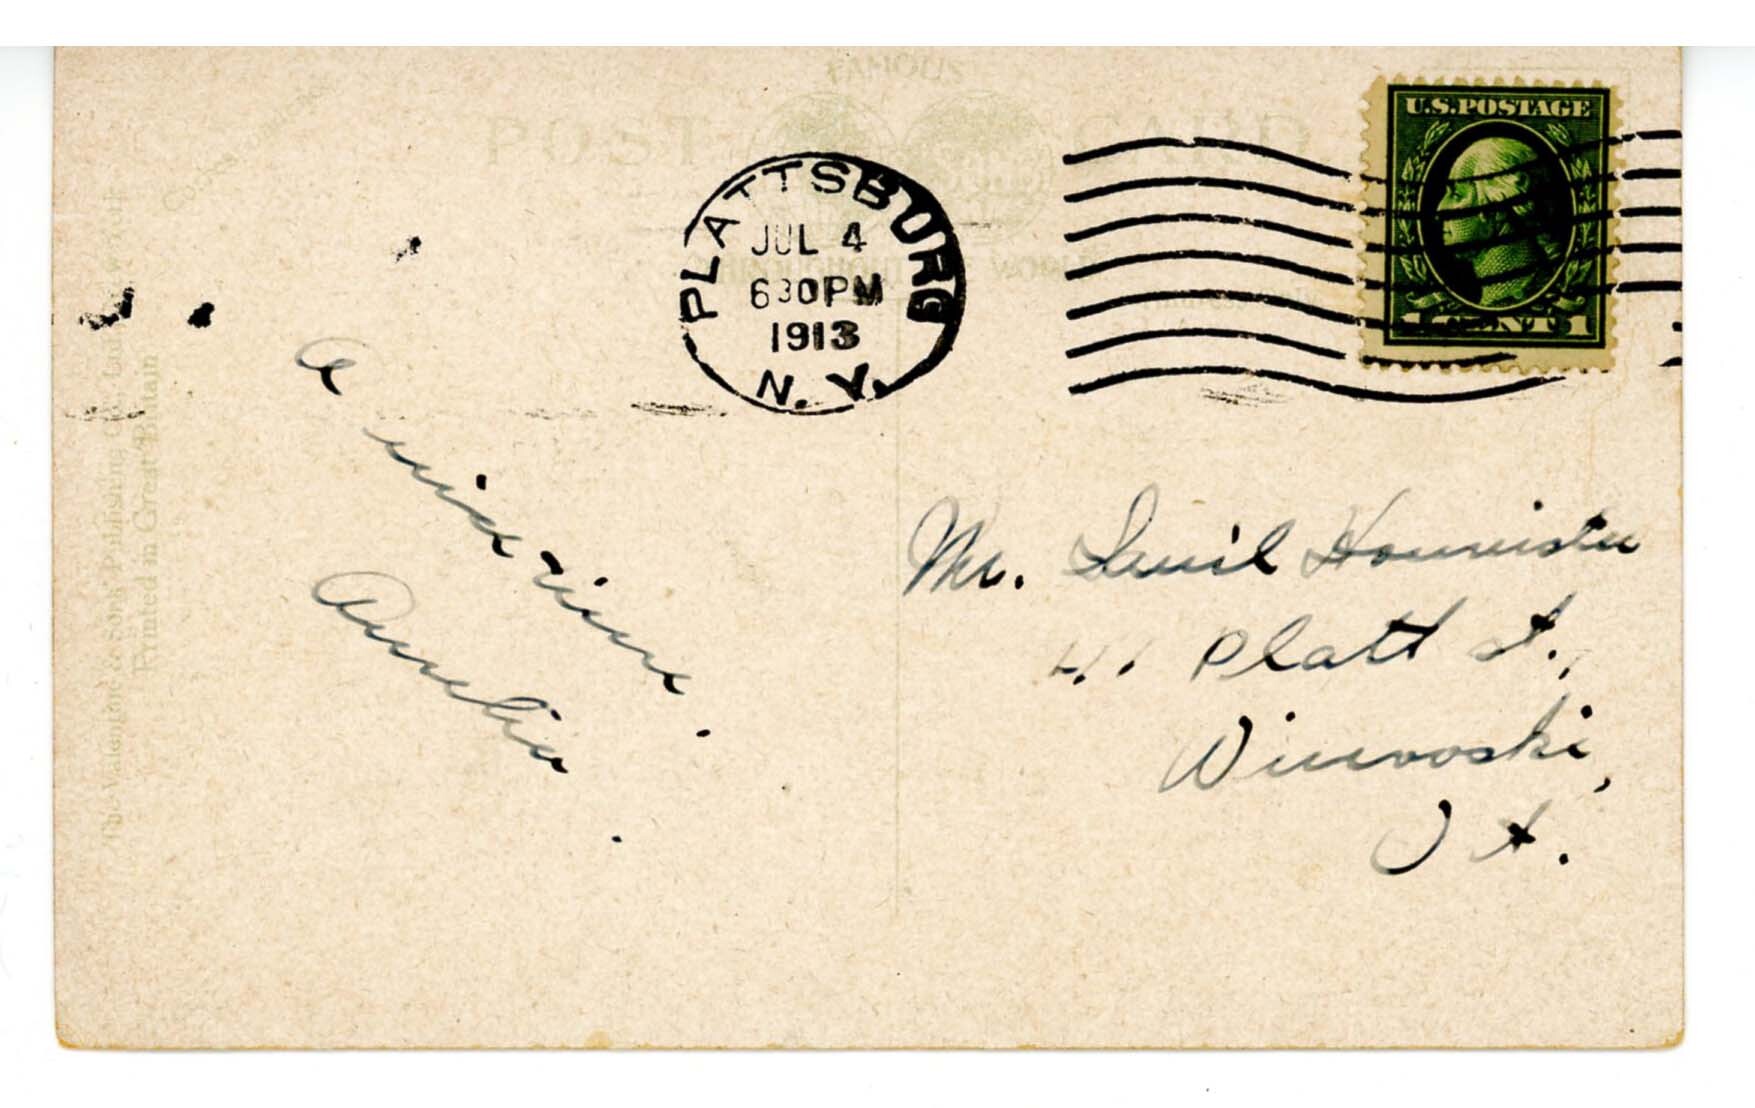 FAMOUS
POST CARD
THROUGHOUT THE WORLD
U.S.POSTAGE
1 CENT 1
PLATTSBURG
JUL 4
630PM
1913
N.Y.
The Valentine & Sons Publishing Co. Ltd.
Printed in Great Britain
a nice time.
Amelia.
Mr.
41 Platt St.,
Winooski,
Vt.